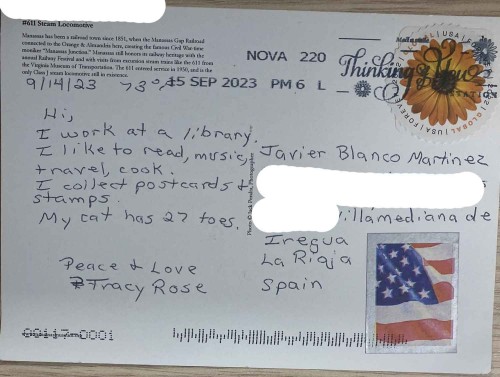 #611 Steam Locomotive
Manassas has been a railroad town since 1851, when the Manassas Gap Railroad
connected to the Orange & Alexandria here, creating the famous Civil War-time
moniker "Manassas Junction." Manassas still honors its railway heritage with the
annual Railway Festival and with visits from excursion steam trains like the 611 from
the Virginia Museum of Transportation. The 611 entered service in 1950, and is the
only Class J steam locomotive still in existence.
NOVA 220
15 SEP 2023 PM 6 L
Thinking of You
GLOBAL USA FOREVER
9/14/23 73°
Hi,
I work at a library.
I like to read, music,
travel, cook.
I collect postcards &
stamps.
My cat has 27 toes.
Peace & Love
Tracy Rose
Javier Blanco Martinez
Villamediana de
Iregua
La Rioja
Spain